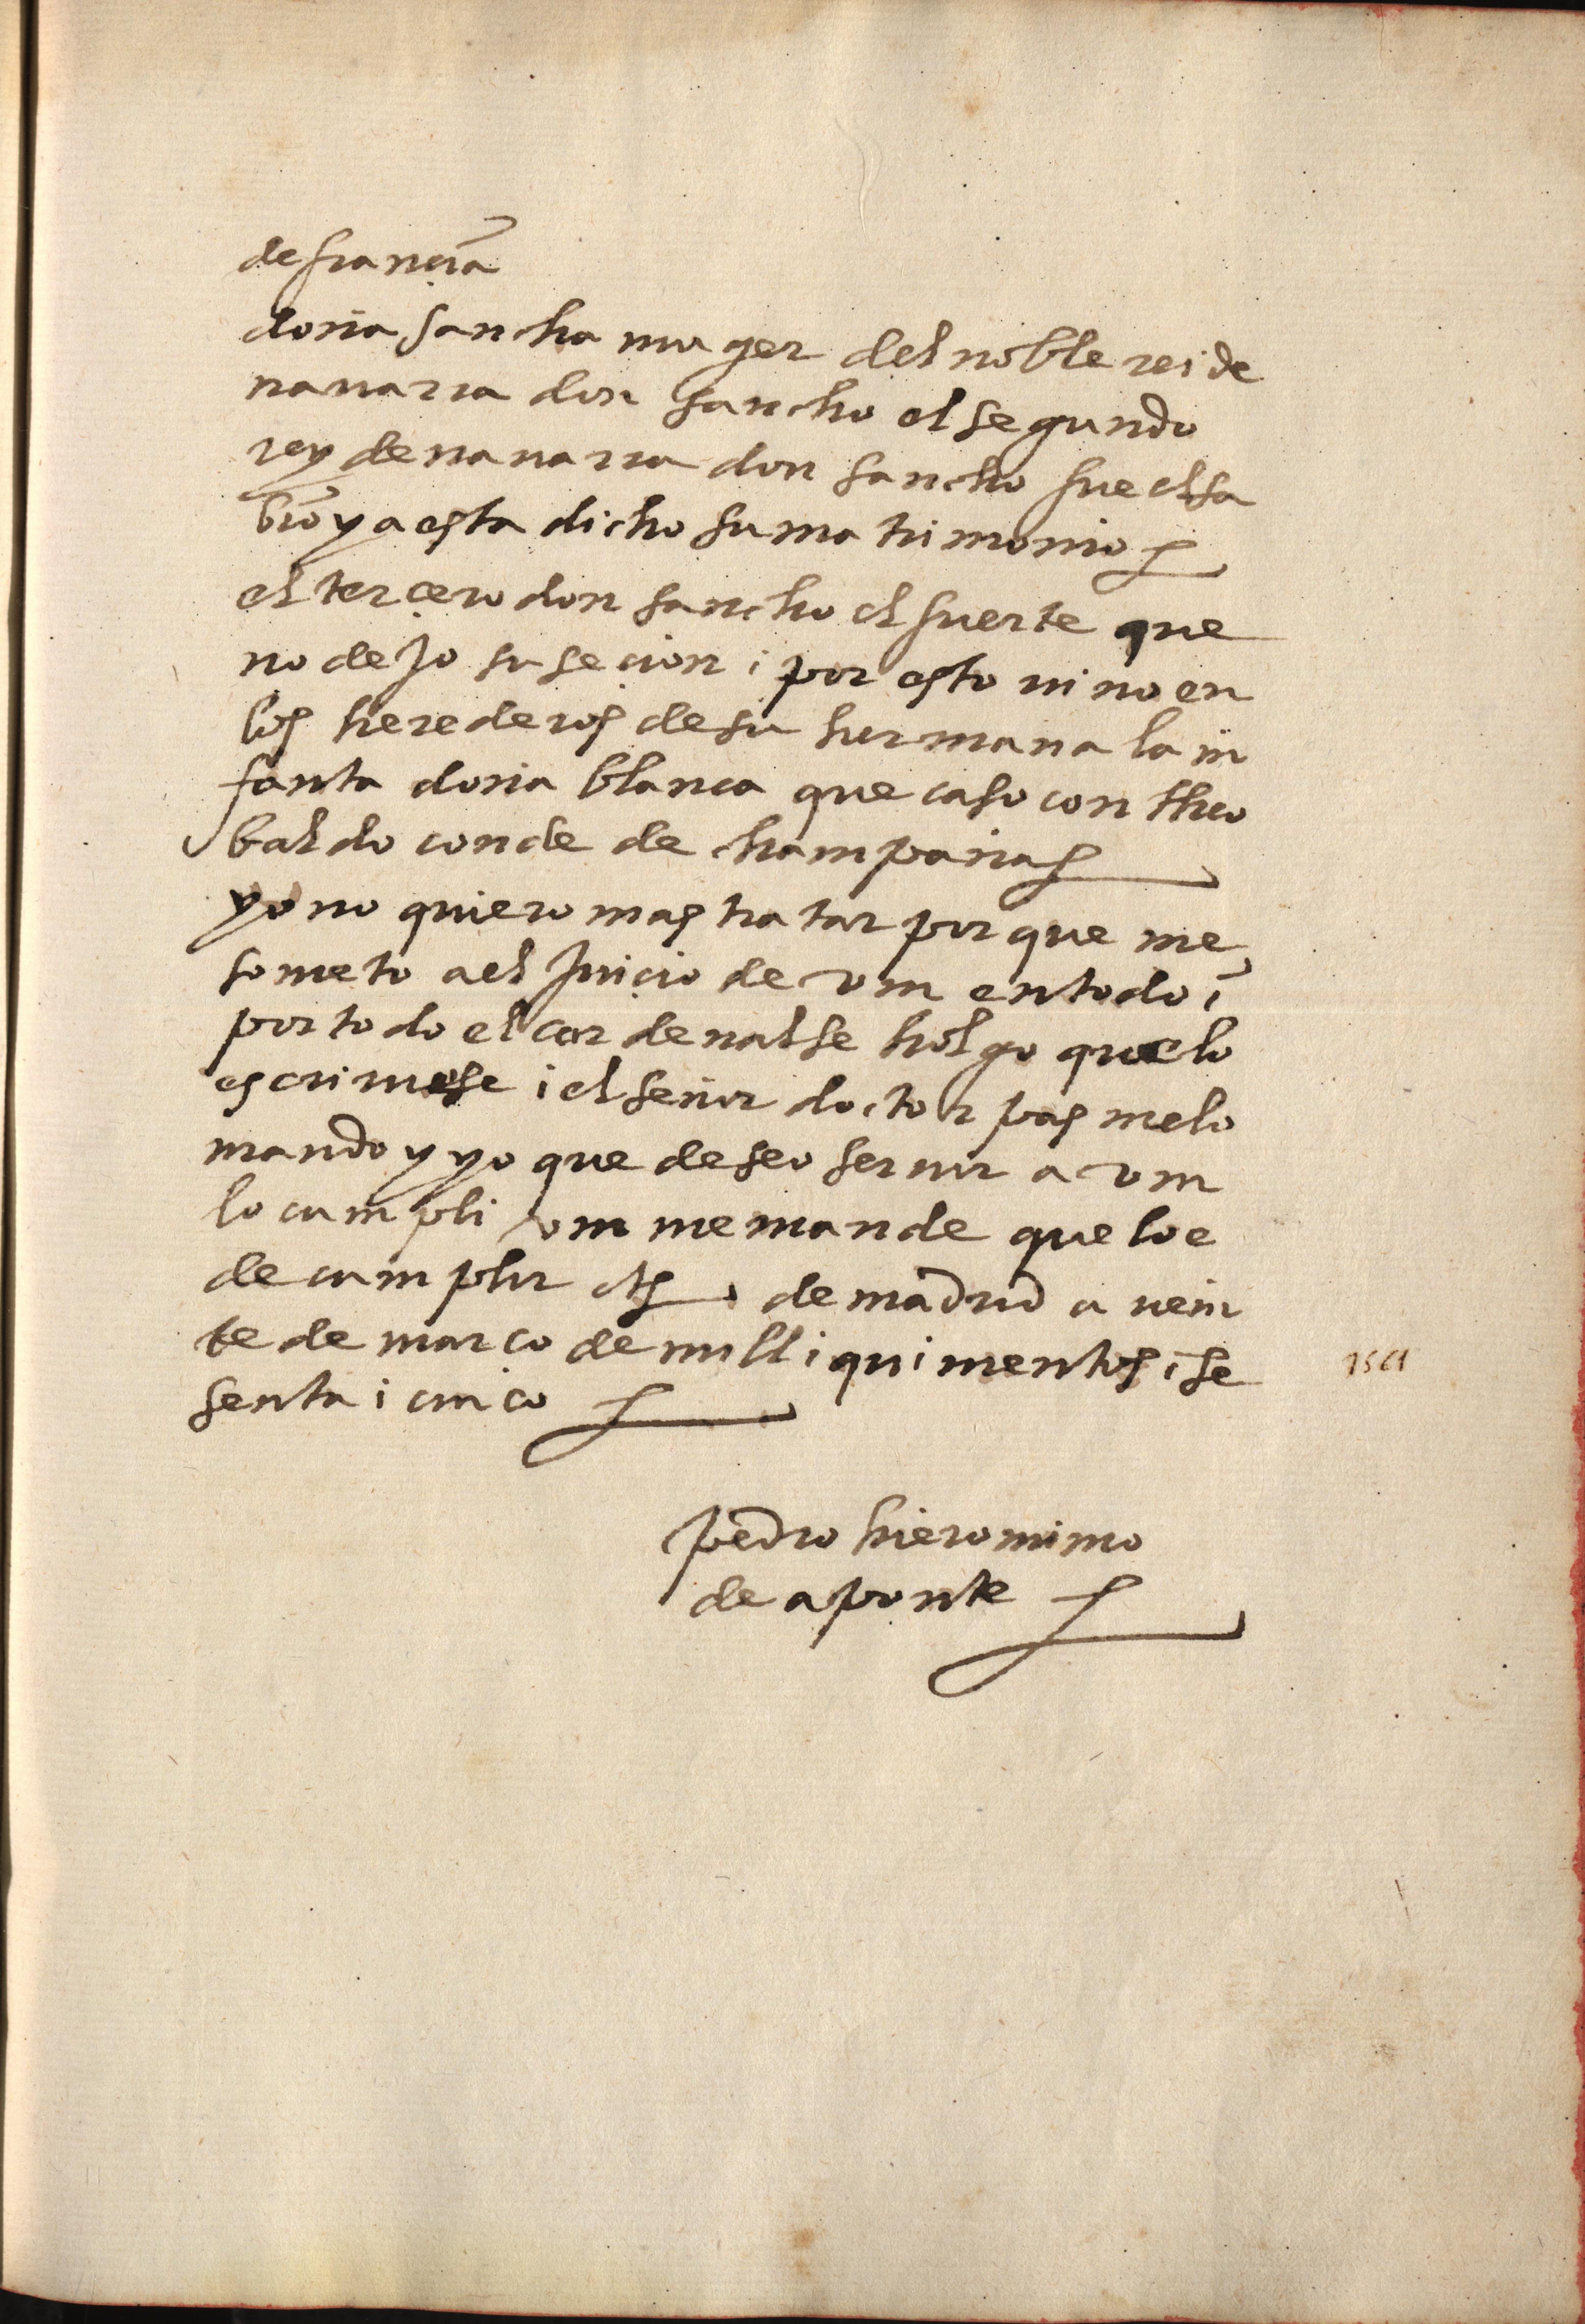 de françia
doña sancha muger del noble rei de
nauarra don sancho el segundo
rey de nauarra don sancho fue el sa
bio ya esta dicho su matrimonio
el terçero don sancho el fuerte que
no dejo suseçion i por esto uino en
los herederos de su hermana la in
fanta doña blanca que caso con theo
baldo conde de champañas
yo no quiero mas tratar por que me
someto a el Juiçio de vm en todo i
por todo el cardenal se holgo que lo
escriuiese i el señor doctor pas me lo
mando y yo que deseo seruir a vm
lo cumpli vm me mande que lo e
de cumplir de madrid a uein
te de março de mill i quinientos i se
senta i cinco
pedro hieronimo
de aponte